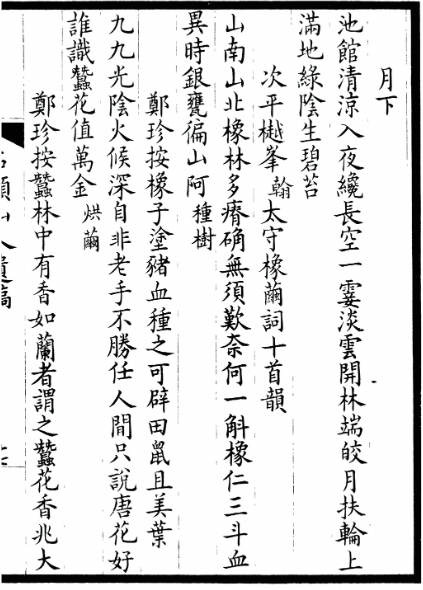 月下
池館清涼入夜纔長空一霎淡雲開林端皎月扶輪上
滿地綠陰生碧苔
次平樾峯翰太守橡繭詞十首韻
山南山北橡林多瘠确無須歎奈何一斛橡仁三斗血
異時銀甕徧山阿 種樹
鄭珍按橡子塗豬血種之可辟田鼠且美葉
九九光陰火候深自非老手不勝任人間只說唐花好
誰識蠶花值萬金 烘繭
鄭珍按蠶林中有香如蘭者謂之蠶花香兆大